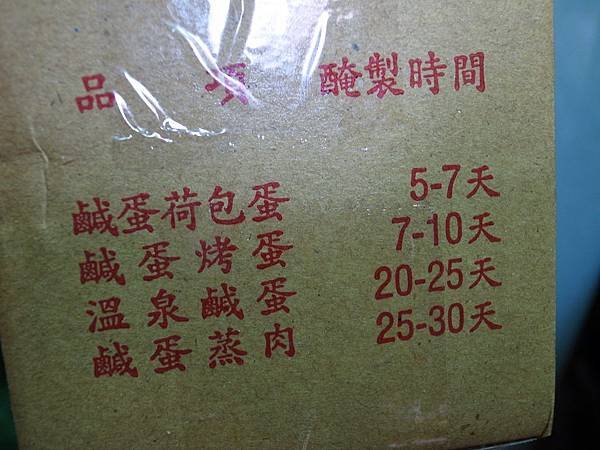 品項 醃製時間
鹹蛋荷包蛋 5-7天
鹹蛋烤蛋 7-10天
溫泉鹹蛋 20-25天
鹹蛋蒸肉 25-30天